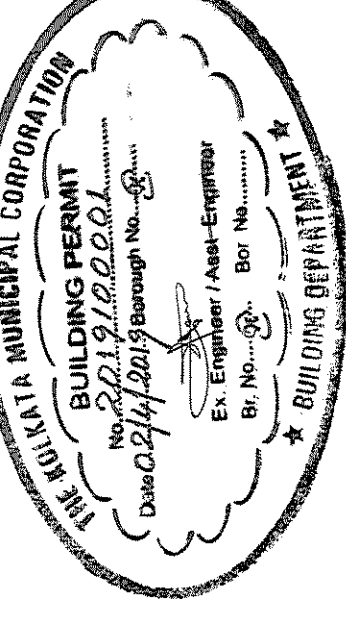 THE KOLKATA MUNICIPAL CORPORATION
BUILDING PERMIT
No. 2019100001
Date 02/4/2019 Borough No.
Ex. Engineer / Asst. Engineer
Br. No. Bor No.
★ BUILDING DEPARTMENT ★